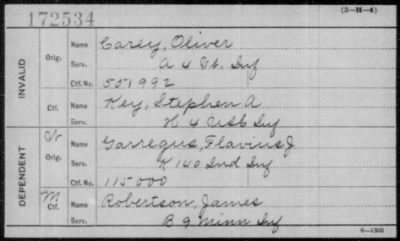 172534 (3-H-4)
INVALID
Orig. Name Carey, Oliver
Serv. A 4 Ct. Inf
Ctf. No. 551992
Ctf. Name Key, Stephen A.
Serv. H 4 Inf
DEPENDENT
Orig. Name Garregus, Flavius J
Serv. K 140 Ind Inf
Ctf. No. 115000
Ctf. Name Robertson, James
Serv. B 9 Minn Inf